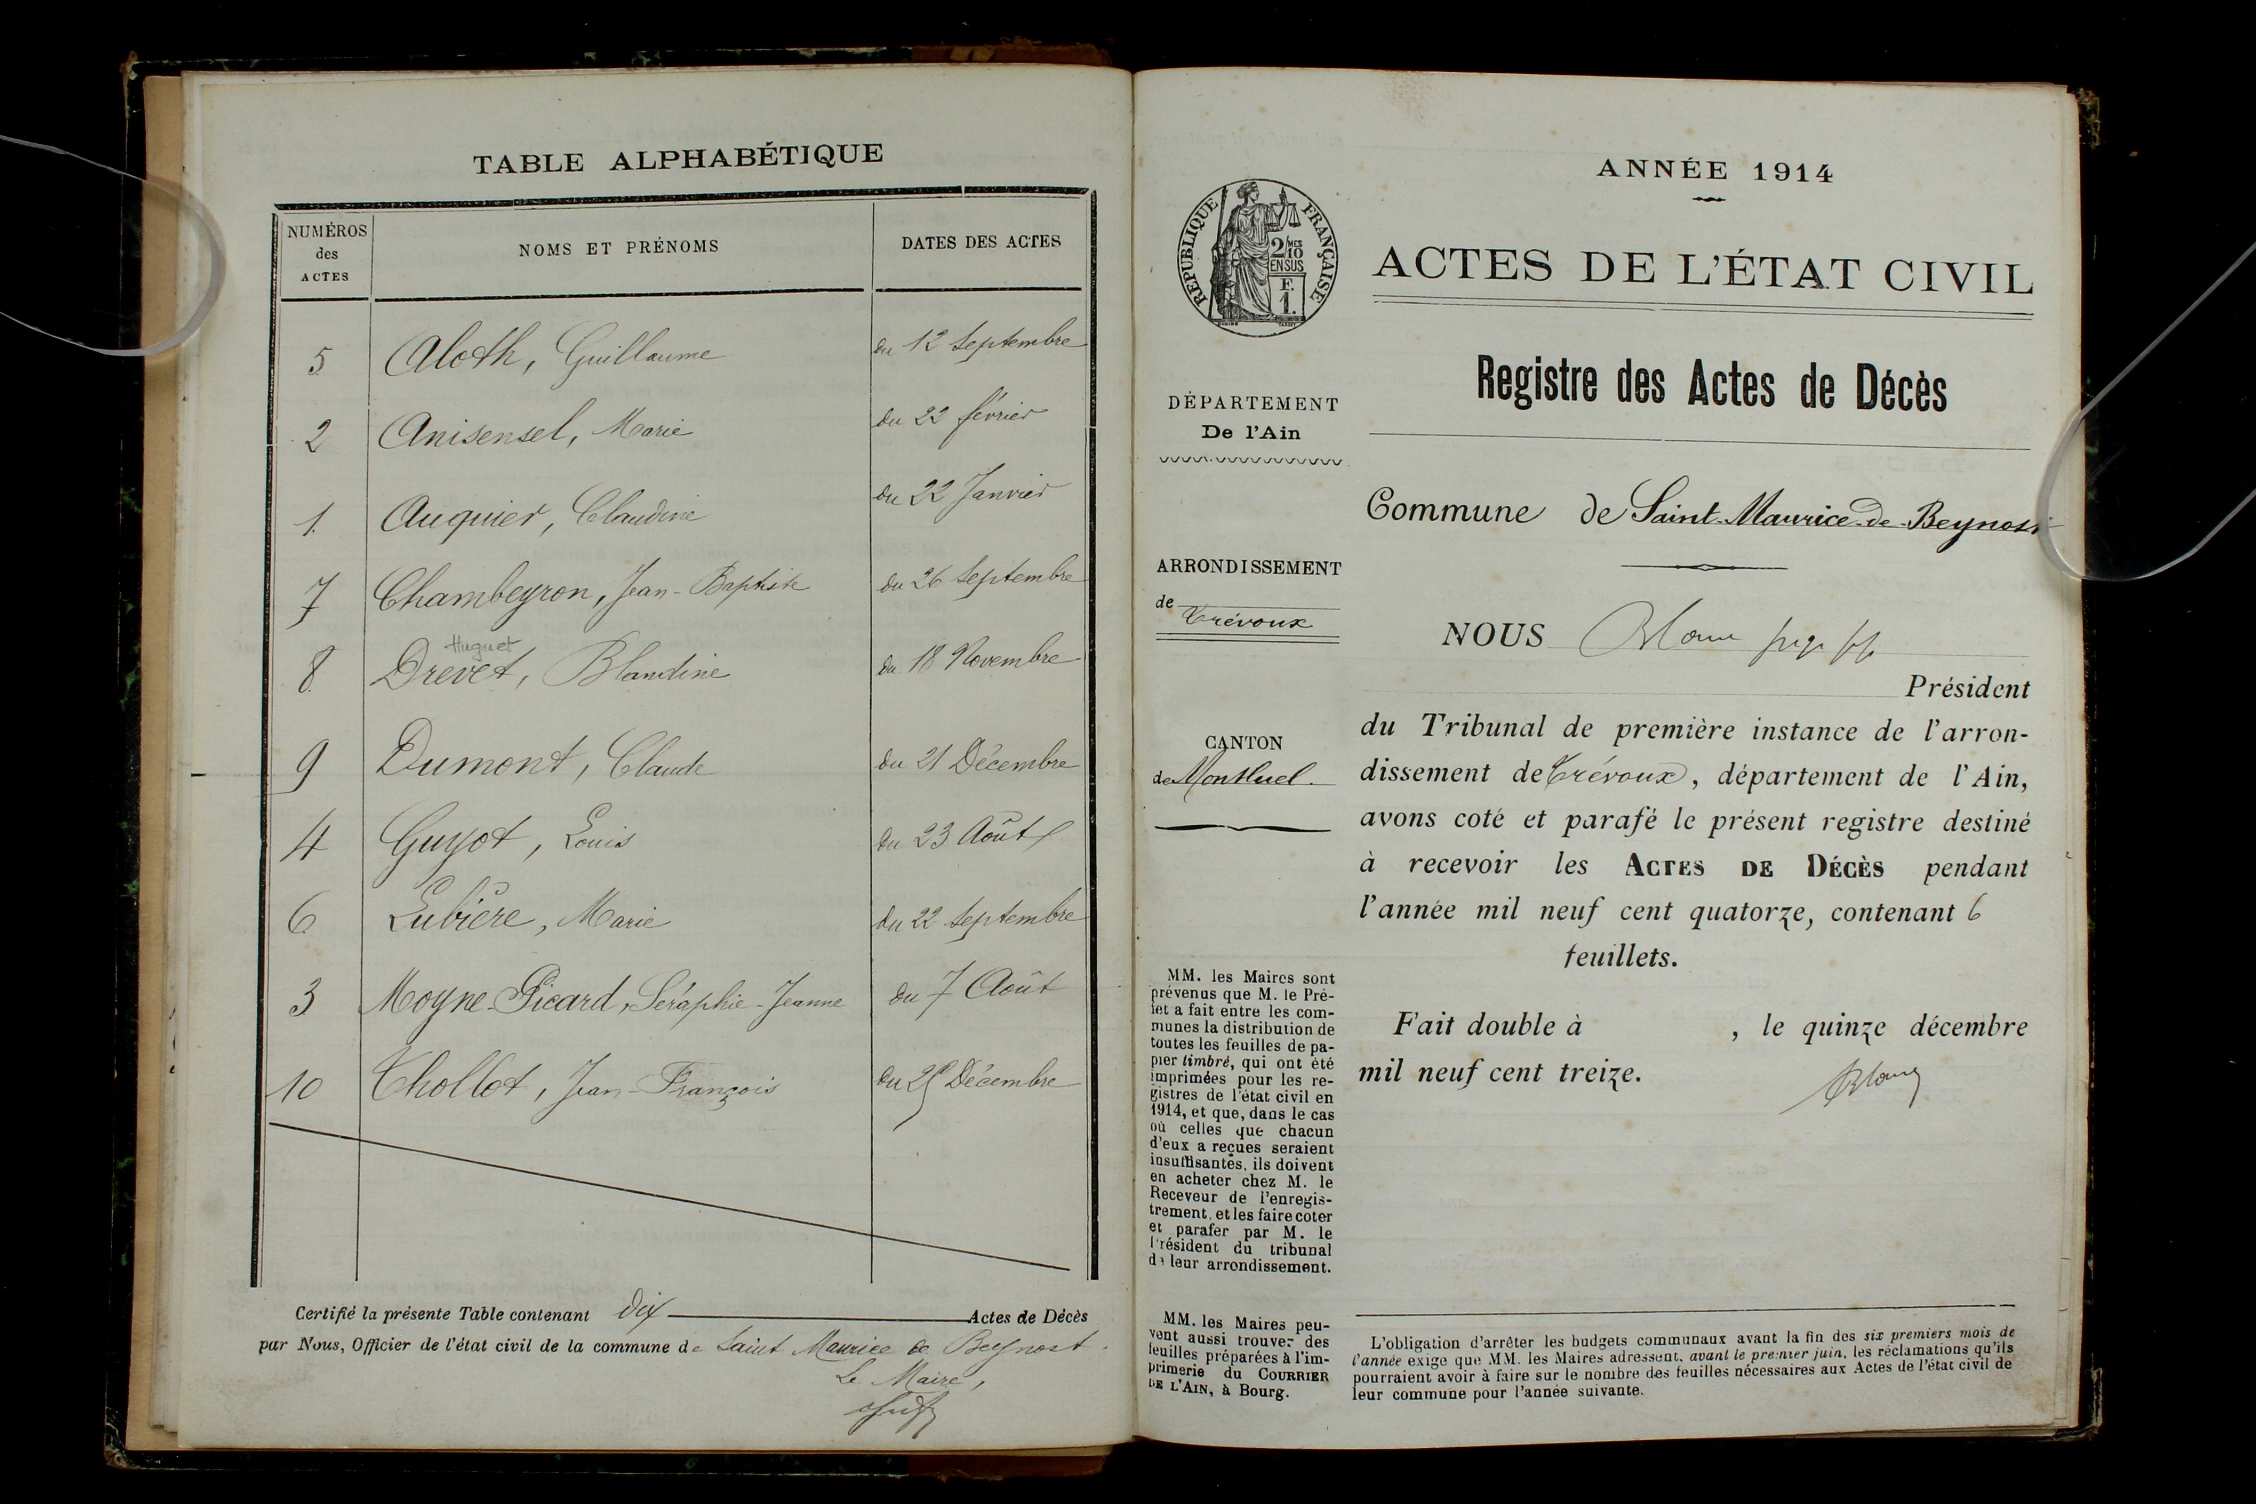 TABLE ALPHABÉTIQUE
NUMÉROS
des
ACTES
NOMS ET PRÉNOMS
DATES DES ACTES
5 Aloth, Guillaume du 12 Septembre
2 Anisensel, Marie du 22 février
1. Auquier, Claudine du 22 Janvier
7 Chambeyron, Jean-Baptiste du 26 Septembre
Huguet
8 Drevet, Blandine du 18 Novembre
9 Dumont, Claude du 21 Décembre
4 Guyot, Louis du 23 Août
6 Lubière, Marie du 22 Septembre
3 Moyne-Picard, Séraphie-Jeanne du 7 Août
10 Thollot, Jean-François du Décembre
Certifié la présente Table contenant dix Actes de Décès
par Nous, Officier de l'état civil de la commune de Saint Maurice de Beynost.
Le Maire,
ANNÉE 1914
RÉPUBLIQUE FRANÇAISE
2/10MES
EN SUS
F.
1.
ACTES DE L'ÉTAT CIVIL
Registre des Actes de Décès
DÉPARTEMENT
De l'Ain
Commune de Saint-Maurice-de-Beynost
ARRONDISSEMENT
de Trévoux
CANTON
de Montluel.
NOUS
Président
du Tribunal de première instance de l'arron-
dissement de Trévoux, département de l'Ain,
avons coté et parafé le présent registre destiné
à recevoir les ACTES DE DÉCÈS pendant
l'année mil neuf cent quatorze, contenant 6
feuillets.
Fait double à , le quinze décembre
mil neuf cent treize.
MM. les Maires sont
prévenus que M. le Pré-
fet a fait entre les com-
munes la distribution de
toutes les feuilles de pa-
pier timbré, qui ont été
imprimées pour les re-
gistres de l'état civil en
1914, et que, dans le cas
où celles que chacun
d'eux a reçues seraient
insuffisantes, ils doivent
en acheter chez M. le
Receveur de l'enregis-
trement, et les faire coter
et parafer par M. le
Président du tribunal
de leur arrondissement.
MM. les Maires peu-
vent aussi trouver des
feuilles préparées à l'im-
primerie du COURRIER
DE L'AIN, à Bourg.
L'obligation d'arrêter les budgets communaux avant la fin des six premiers mois de
l'année exige que MM. les Maires adressent, avant le premier juin, les réclamations qu'ils
pourraient avoir à faire sur le nombre des feuilles nécessaires aux Actes de l'état civil de
leur commune pour l'année suivante.